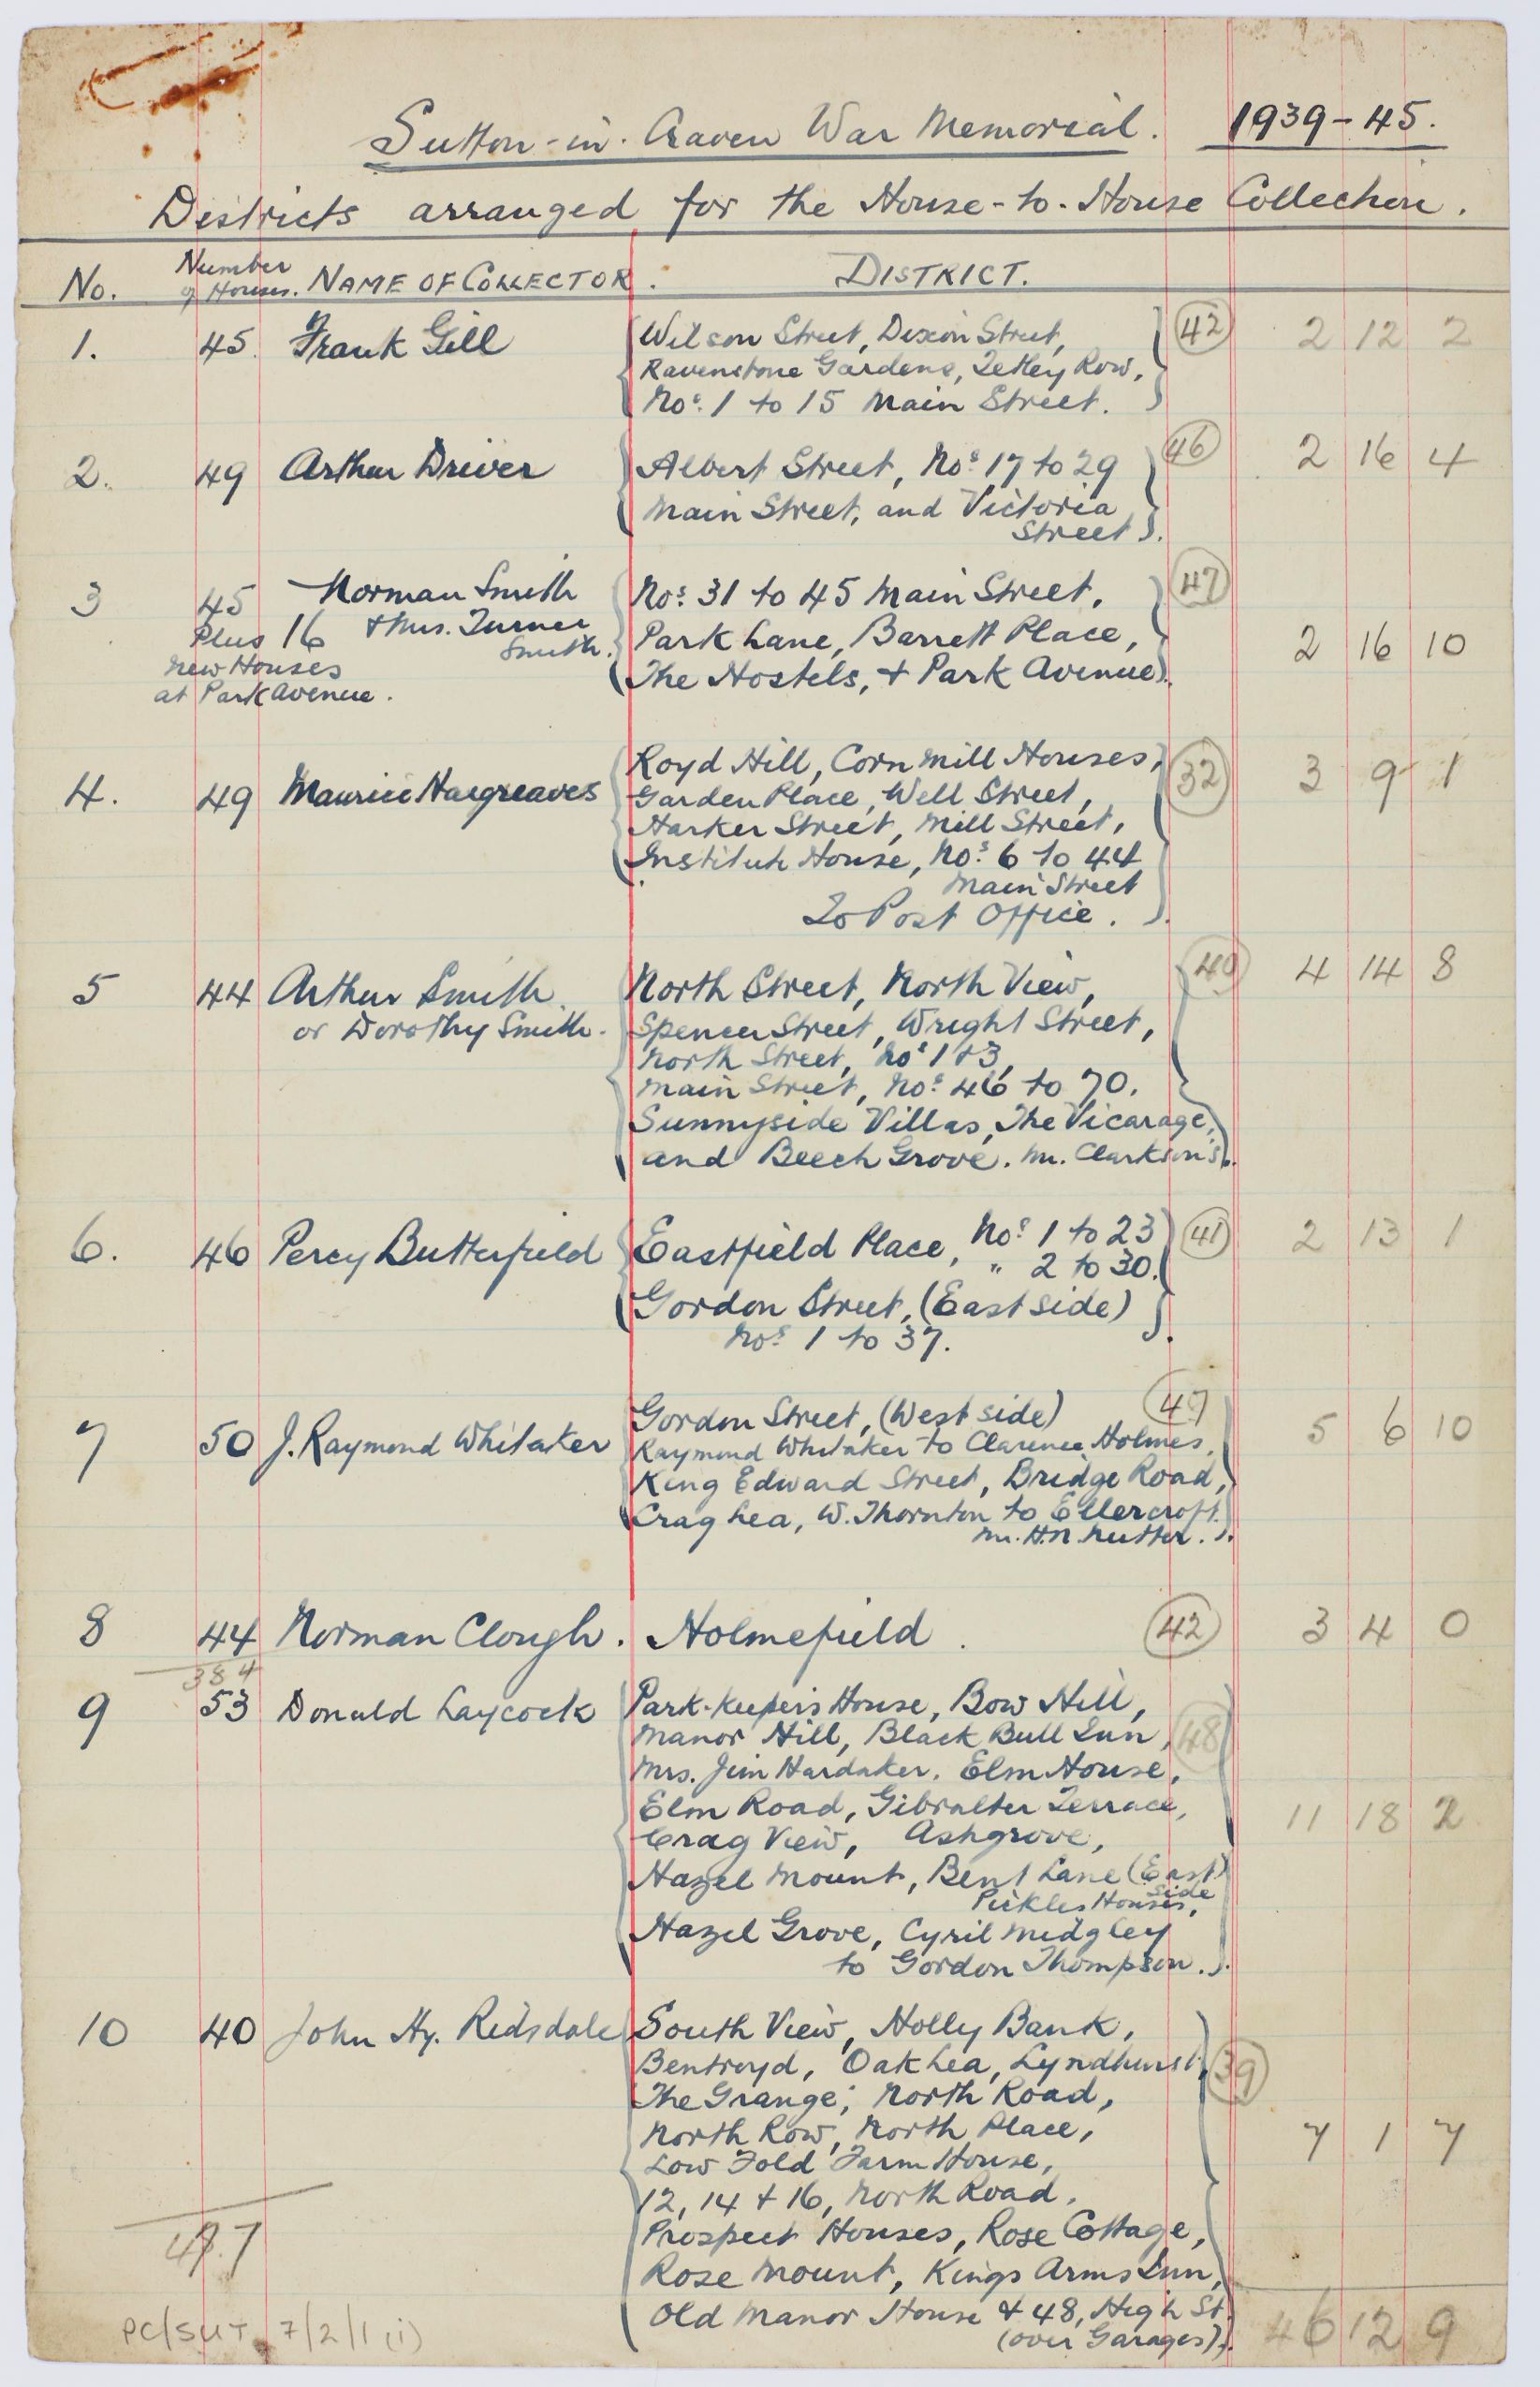 Sutton-in-Craven War Memorial. 1939-45.
Districts arranged for the House-to-House Collection.
No. Number of Houses. NAME OF COLLECTOR. DISTRICT.
1. 45. Frank Gill Wilson Street, Dixon Street, 42 2 12 2
Ravenstone Gardens, Tetley Row,
Nos. 1 to 15 Main Street.
2. 49 Arthur Driver Albert Street, Nos. 17 to 29 46 2 16 4
Main Street, and Victoria
Street.
3 45 Norman Smith Nos. 31 to 45 Main Street, 47
Plus 16 & Mrs. Turner Park Lane, Barrett Place, 2 16 10
Smith.
New Houses The Hostels, & Park Avenue.
at Park Avenue.
4. 49 Maurice Hargreaves Royd Hill, Corn Mill Houses, 32 3 9 1
Garden Place, Well Street,
Harker Street, Mill Street,
Institute House, Nos. 6 to 44
Main Street
To Post Office.
5 44 Arthur Smith. North Street, North View, 40 4 14 8
or Dorothy Smith. Spencer Street, Wright Street,
North Street, Nos 1 & 3,
Main Street, Nos. 46 to 70.
Sunnyside Villas, The Vicarage,
and Beech Grove. Mr. Clarkson's.
6. 46 Percy Butterfield Eastfield Place, Nos. 1 to 23 41 2 13 1
" 2 to 30.
Gordon Street, (East side)
Nos. 1 to 37.
7 50 J. Raymond Whitaker Gordon Street, (West side) 47 5 6 10
Raymond Whitaker to Clarence Holmes,
King Edward Street, Bridge Road,
Crag Lea, W. Thornton to Ellercroft.
Mr. H.N. Nutter.
8 44 Norman Clough. Holmefield. 42 3 4 0
384
9 53 Donald Laycock Park-keeper's House, Bow Hill,
Manor Hill, Black Bull Inn, 48
Mrs. Jim Hardaker, Elm House,
Elm Road, Gibralter Terrace, 11 18 2
Crag View, Ashgrove,
Hazel Mount, Bent Lane (East
side
Pickles Houses,
Hazel Grove, Cyril Midgley
to Gordon Thompson.
10 40 John Hy. Redsdale South View, Holly Bank,
Bentroyd, Oak Lea, Lyndhurst, 39
The Grange; North Road,
North Row, North Place, 7 1 7
Low Fold Farm House,
12, 14 & 16, North Road.
Prospect Houses, Rose Cottage,
477 Rose Mount, Kings Arms Inn,
Old Manor House & 48, High St. 46 12 9
(over Garages).
PC/SUT 7/2/1 (i)